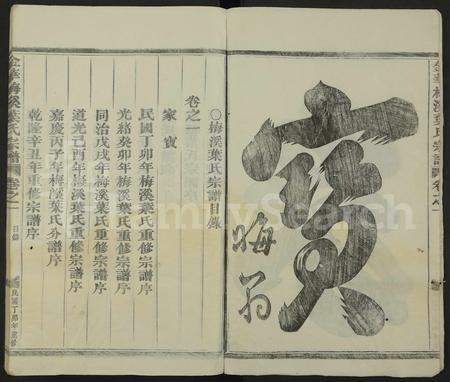 金華梅溪葉氏宗譜 卷之一
寶
晦翁
○梅溪葉氏宗譜目錄
卷之一
家寶
民國丁卯年梅溪葉氏重修宗譜序
光緒癸卯年梅溪葉氏重修宗譜序
同治戊戌年梅溪葉氏重修宗譜序
道光己酉年梅溪葉氏重修宗譜序
嘉慶丙子年梅溪葉氏分譜序
乾隆辛丑年重修宗譜序
金華梅溪葉氏宗譜 卷之一 目錄 民國丁卯年重修
FamilySearch